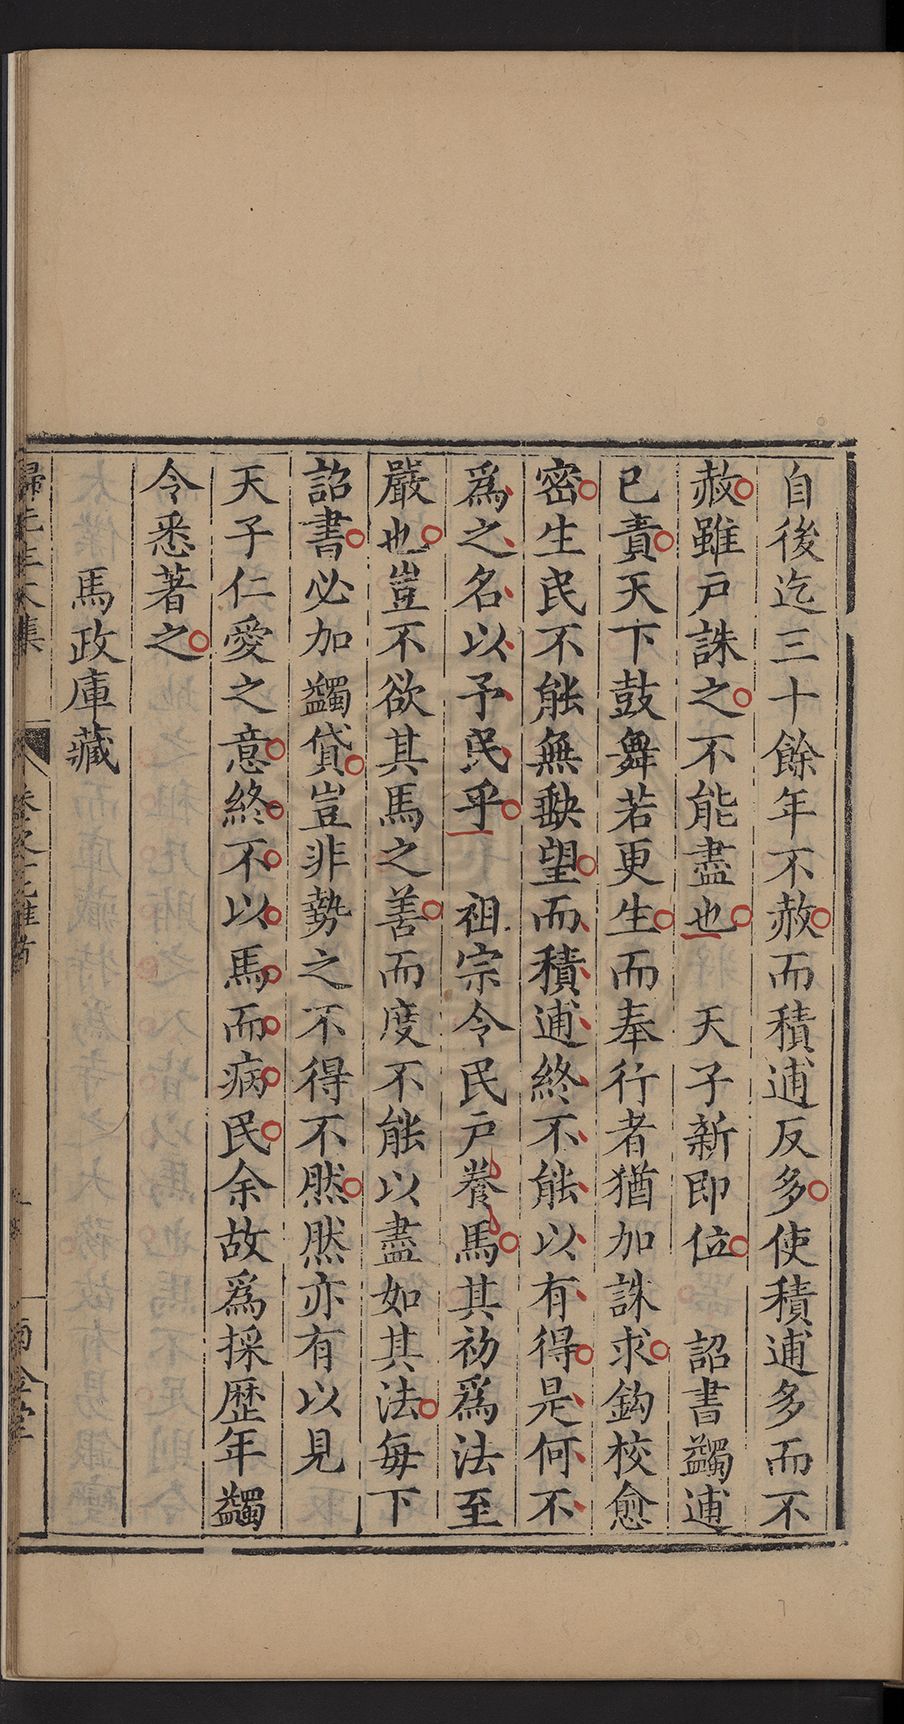 自後迄三十餘年不赦而積逋反多使積逋多而不
赦雖戸誅之不能盡也　天子新即位　詔書蠲逋
已責天下鼓舞若更生而奉行者猶加誅求鈎校愈
密生民不能無觖望而積逋終不能以有得是何不
爲之名以予民乎　祖宗令民戸養馬其初爲法至
嚴也豈不欲其馬之善而度不能以盡如其法每下
詔書必加蠲貸豈非勢之不得不然然亦有以見
天子仁愛之意終不以馬而病民余故爲採歷年蠲
令悉著之
馬政庫藏